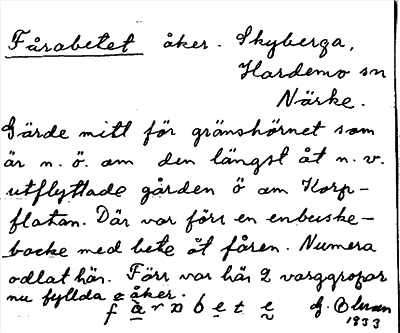 Fårabetet åker. Skyberga,
Hardemo sn
Närke.
Gärde mitt för gränshörnet som
är n. ö. om den längst åt n. v.
utflyttade gården ö om Korp-
flatan. Där var förr en enbuske-
backe med bete åt fåren. Numera
odlat här. Förr var här 2 varggropar
nu fyllda o åker.
f å r a b e t e
1933